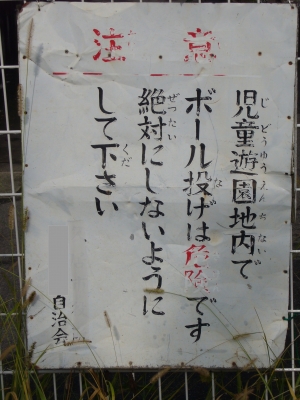 注意
児童遊園地内で
ボール投げは危険です
絶対にしないように
して下さい
自治会